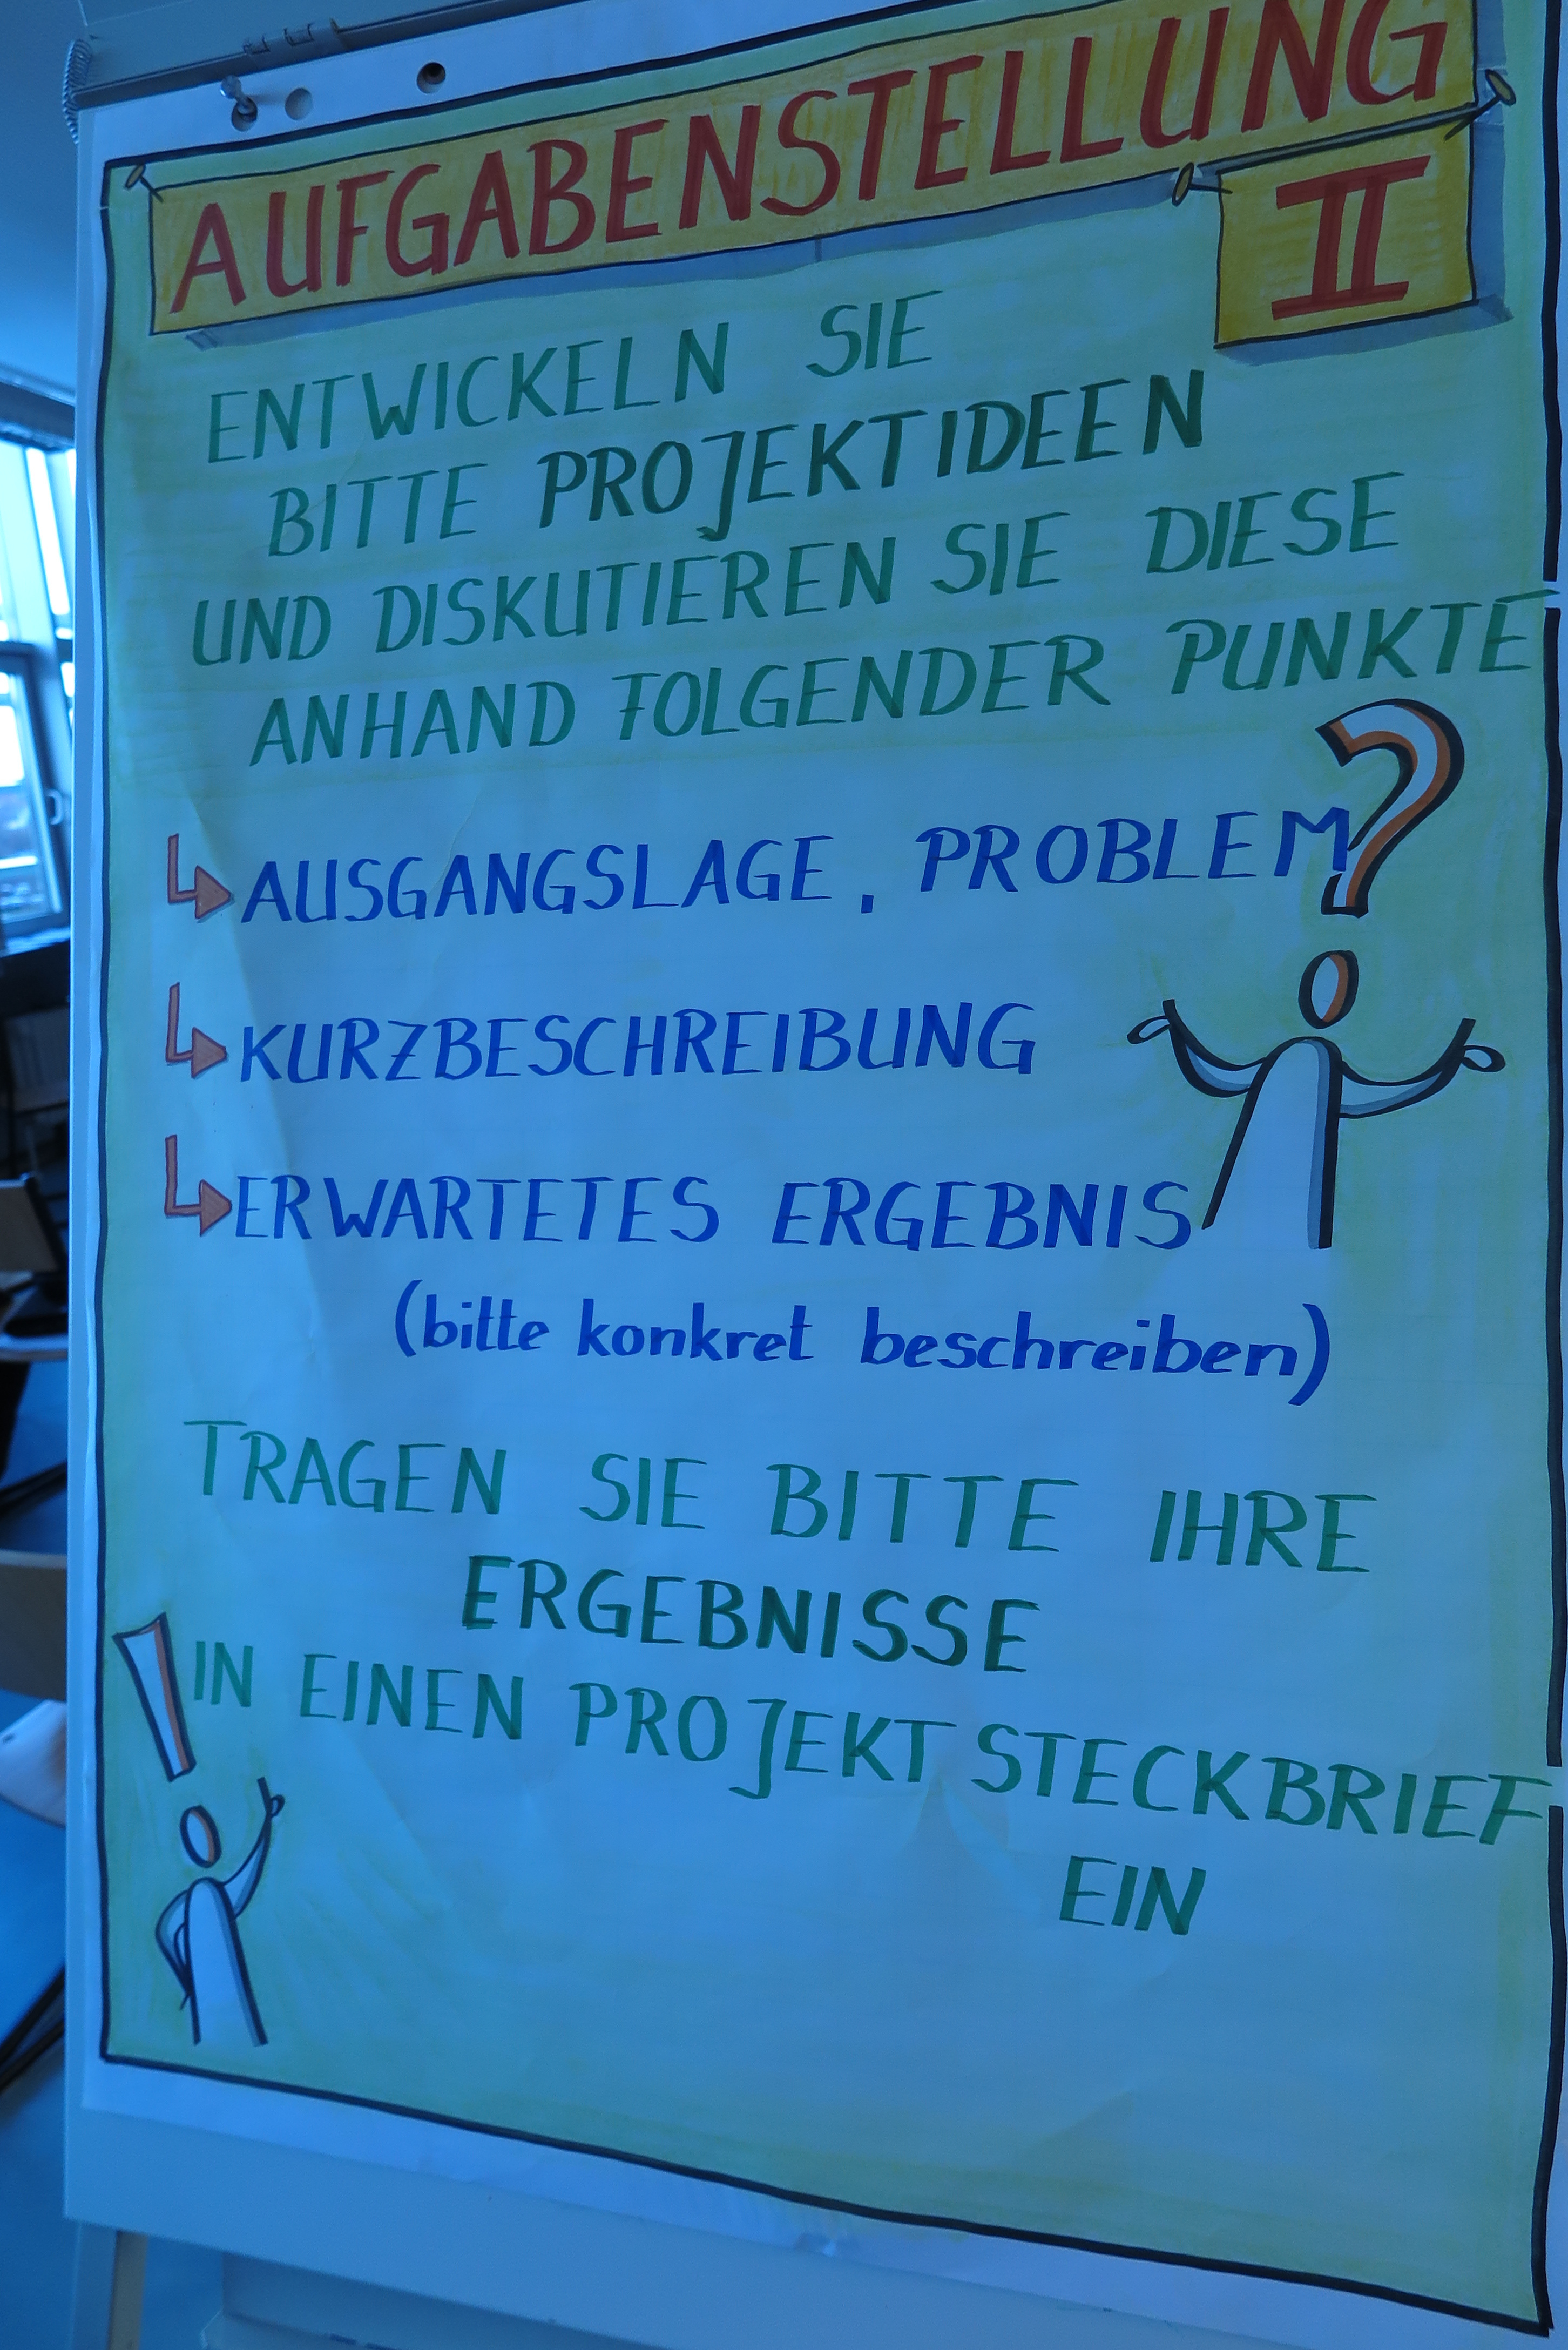 AUFGABENSTELLUNG
II
ENTWICKELN SIE
BITTE PROJEKTIDEEN
UND DISKUTIEREN SIE DIESE
ANHAND FOLGENDER PUNKTE
AUSGANGSLAGE, PROBLEM
?
KURZBESCHREIBUNG
ERWARTETES ERGEBNIS
(bitte konkret beschreiben)
TRAGEN SIE BITTE IHRE
ERGEBNISSE
!
IN EINEN PROJEKTSTECKBRIEF
EIN